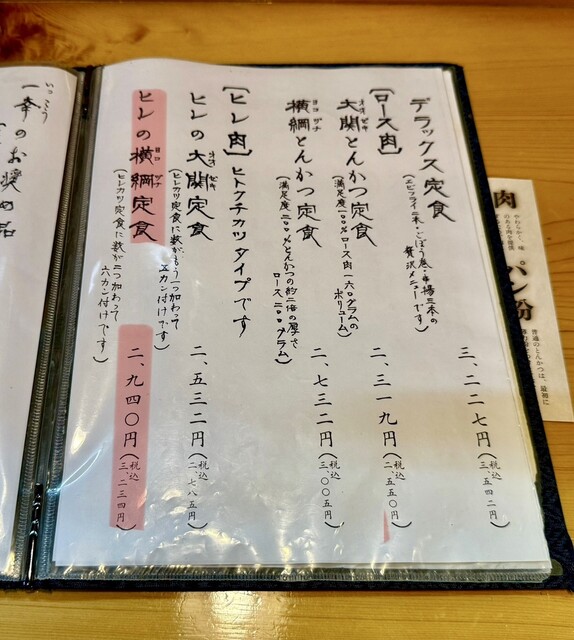 デラックス定食
（エビフライ二本・ごぼう巻・串揚三本の
贅沢メニューです）
三、二二七円
（税込
三、五四二円）
［ロース肉］
大関とんかつ定食
オオ ゼキ
（満足度一〇〇％ロース肉一六〇グラムの
ボリューム）
二、三一九円
（税込
二、五五〇円）
横綱とんかつ定食
ヨコ ヅナ
（満足度二〇〇％とんかつの約二倍の厚さ
ロース二〇〇グラム）
二、七三二円
（税込
三、〇〇五円）
［ヒレ肉］ヒトクチカツタイプです
ヒレの大関定食
オオ ゼキ
（ヒレカツ定食に数がもう一つ加わって
五カン付けです）
二、五三二円
（税込
二、七八五円）
ヒレの横綱定食
ヨコ ヅナ
（ヒレカツ定食に数が二つ加わって
六カン付けです）
二、九四〇円
（税込
三、二三四円）
いっこう
一幸のお奨め品
肉
やわらかく、味
のある肉を提供
パン粉
普通のとんかつは、最初に